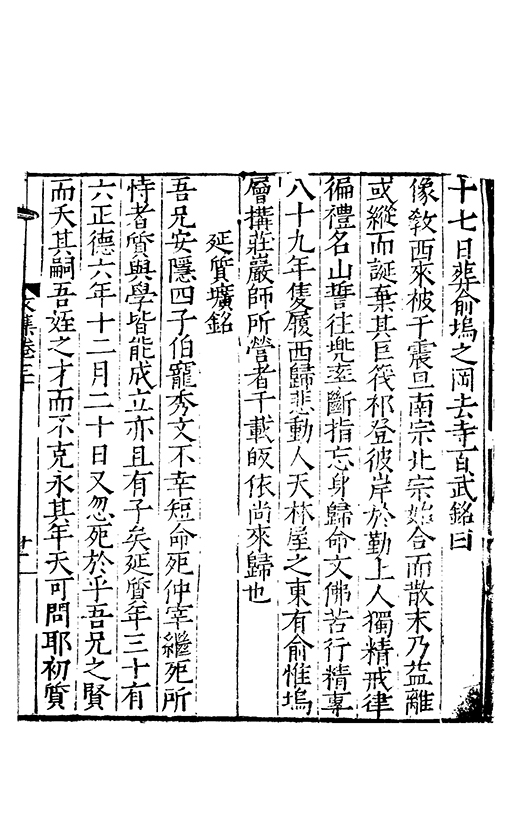 十七日葬俞塢之岡去寺百武銘曰
像敎西來被于震旦南宗北宗始合而散末乃益離
或縱而誕棄其巨筏祁登彼岸於勤上人獨精戒律
徧禮名山誓往兠率斷指忘身歸命文佛苦行精專
八十九年隻履西歸悲動人天林屋之東有俞惟塢
層搆莊嚴師所營者千載皈依尚來歸也
延質壙銘
吾兄安隱四子伯寵秀文不幸短命死仲宰繼死所
恃者質與學皆能成立亦且有子矣延質年三十有
六正德六年十二月二十日又忽死於乎吾兄之賢
而夭其嗣吾姪之才而不克永其年天可問耶初質
文集卷三十
廿一